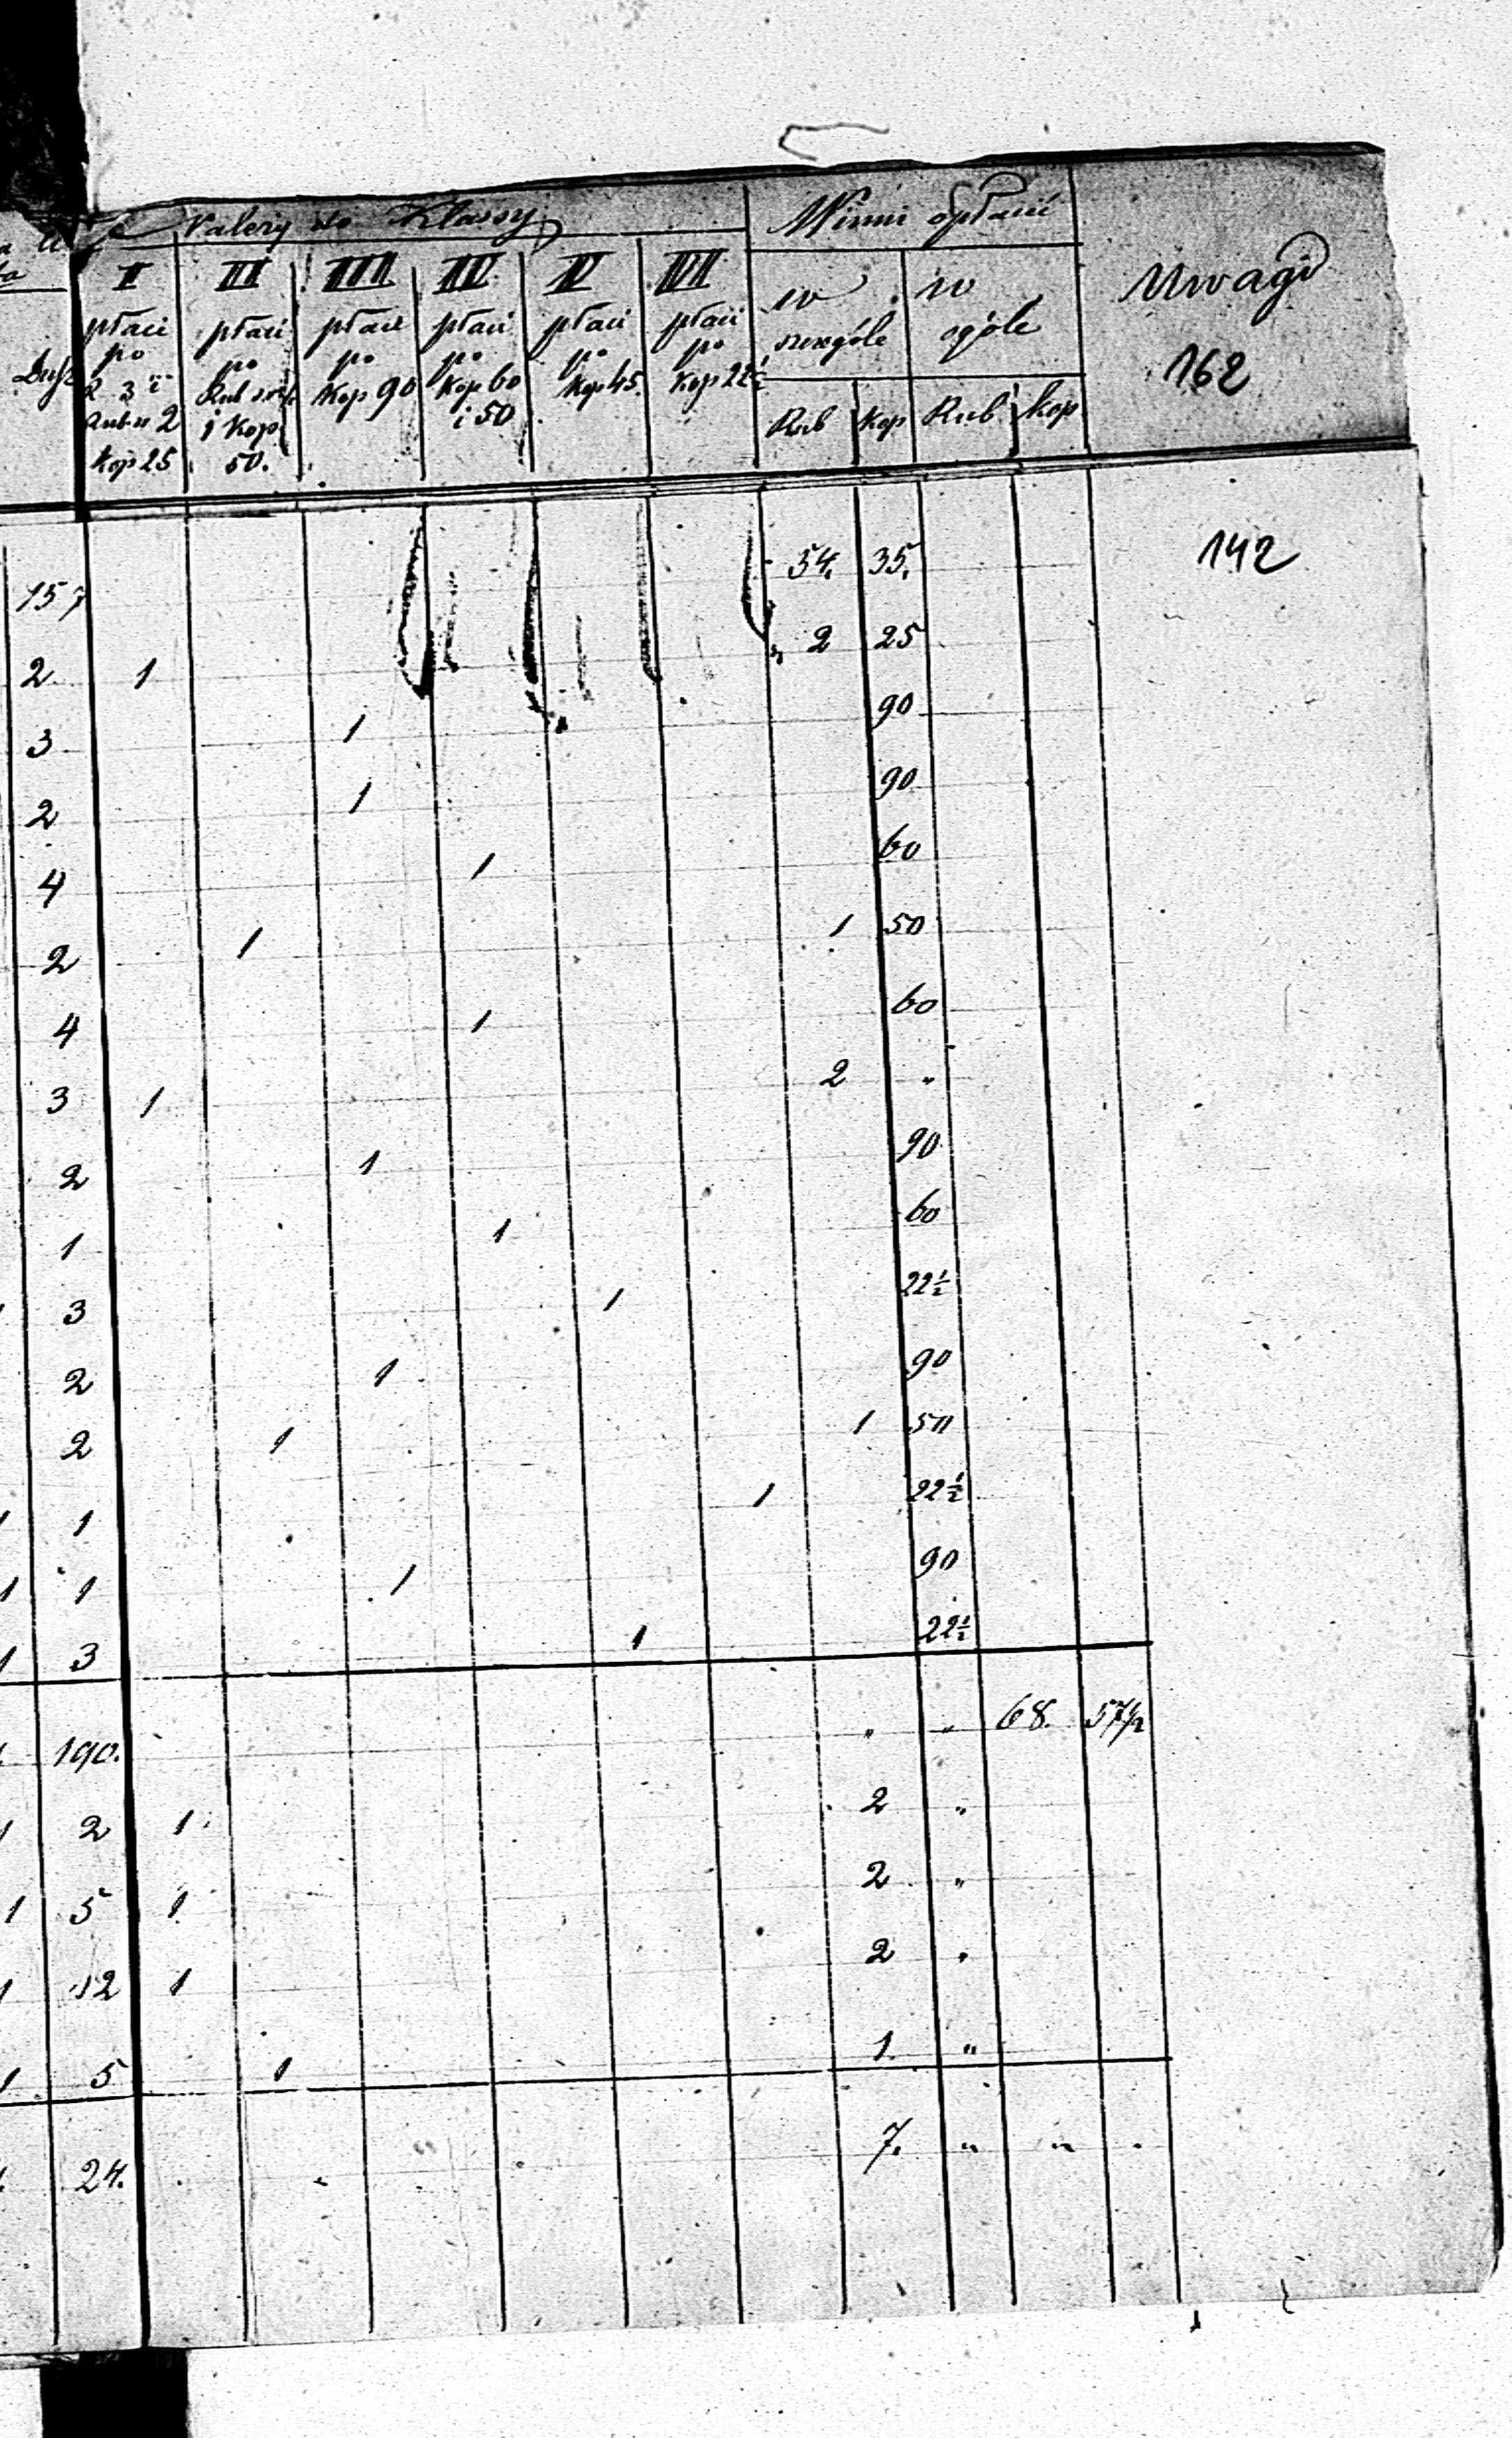 Należy do Klassy
Winni opłacić
Uwagi
I II III IV V VI
w szczególe
w ogóle
162
Dusz
płaci po R. 3 i Rub. 2 Kop 25
płaci po Rub i Kop. 50.
płaci po Kop 90
płaci po Kop 60 i 50
płaci po Kop 45.
płaci po Kop 22½
Rub Kop Rub Kop
157 54. 35. 142
2 1 2 25
3 1 90
2 1 90
4 1 60
2 1 1 50
4 1 60
3 1 2 "
2 1 90
1 1 60
3 1 22½
2 1 90
2 1 1 50
1 1 1 22½
1 1 1 90
1 3 1 22½
190. " " 68. 57½
1 2 1 2 "
1 5 1 2 "
1 12 1 2 "
1 5 1 1. "
24. 7. " " "